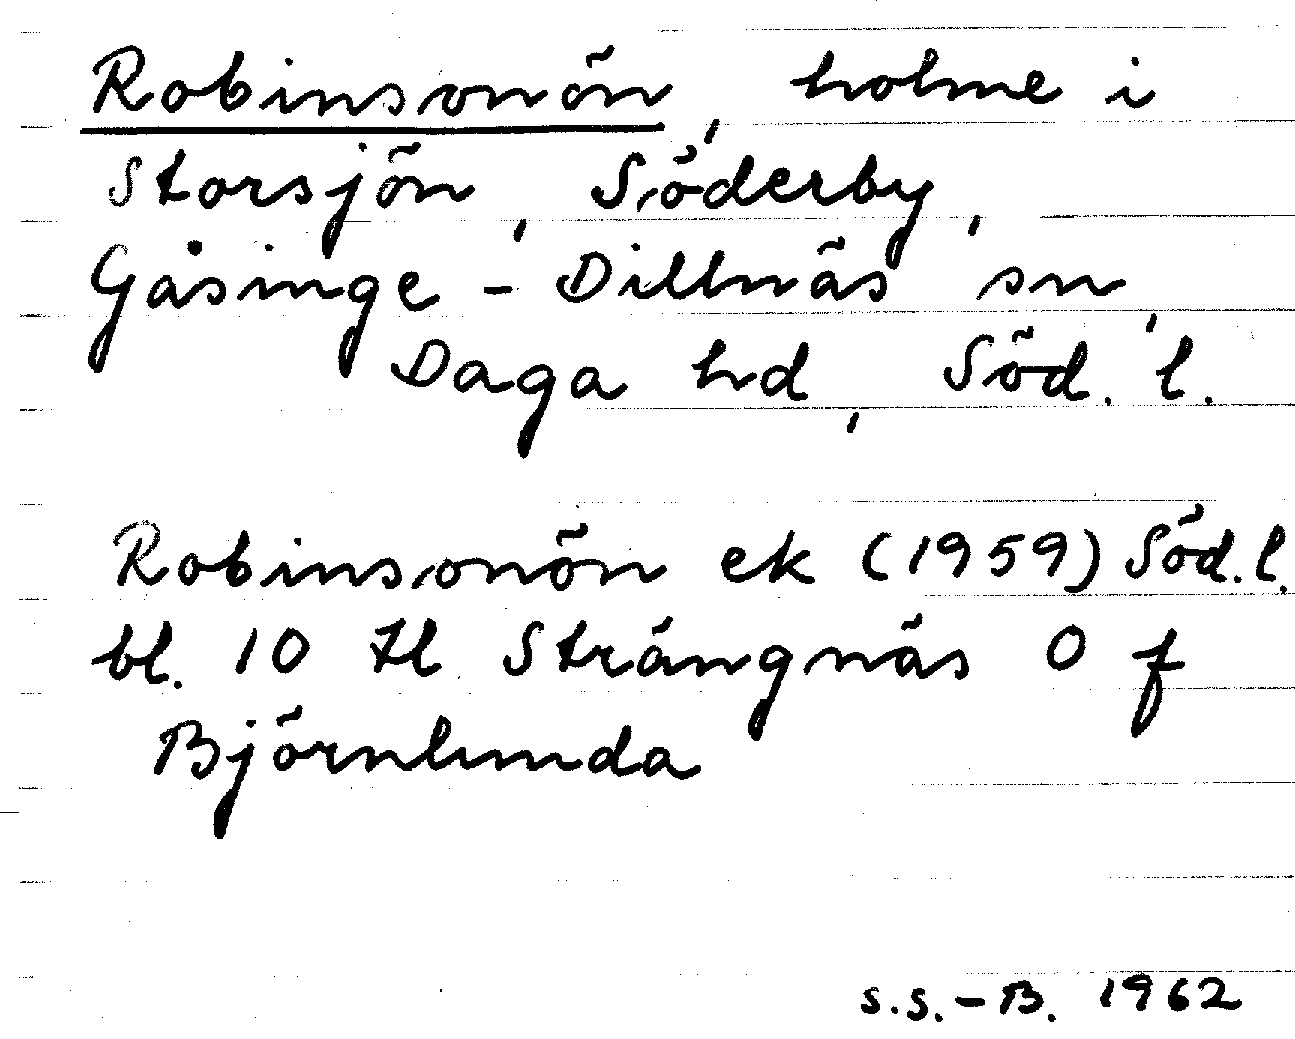 Robinsonön, holme i
Storsjön, Söderby,
Gåsinge-Dillnäs sn,
Daga hd, Söd. l.
Robinsonön ek (1959) Söd. l.
bl. 10 tl Strängnäs O f
Björnlunda
S.S.-B. 1962